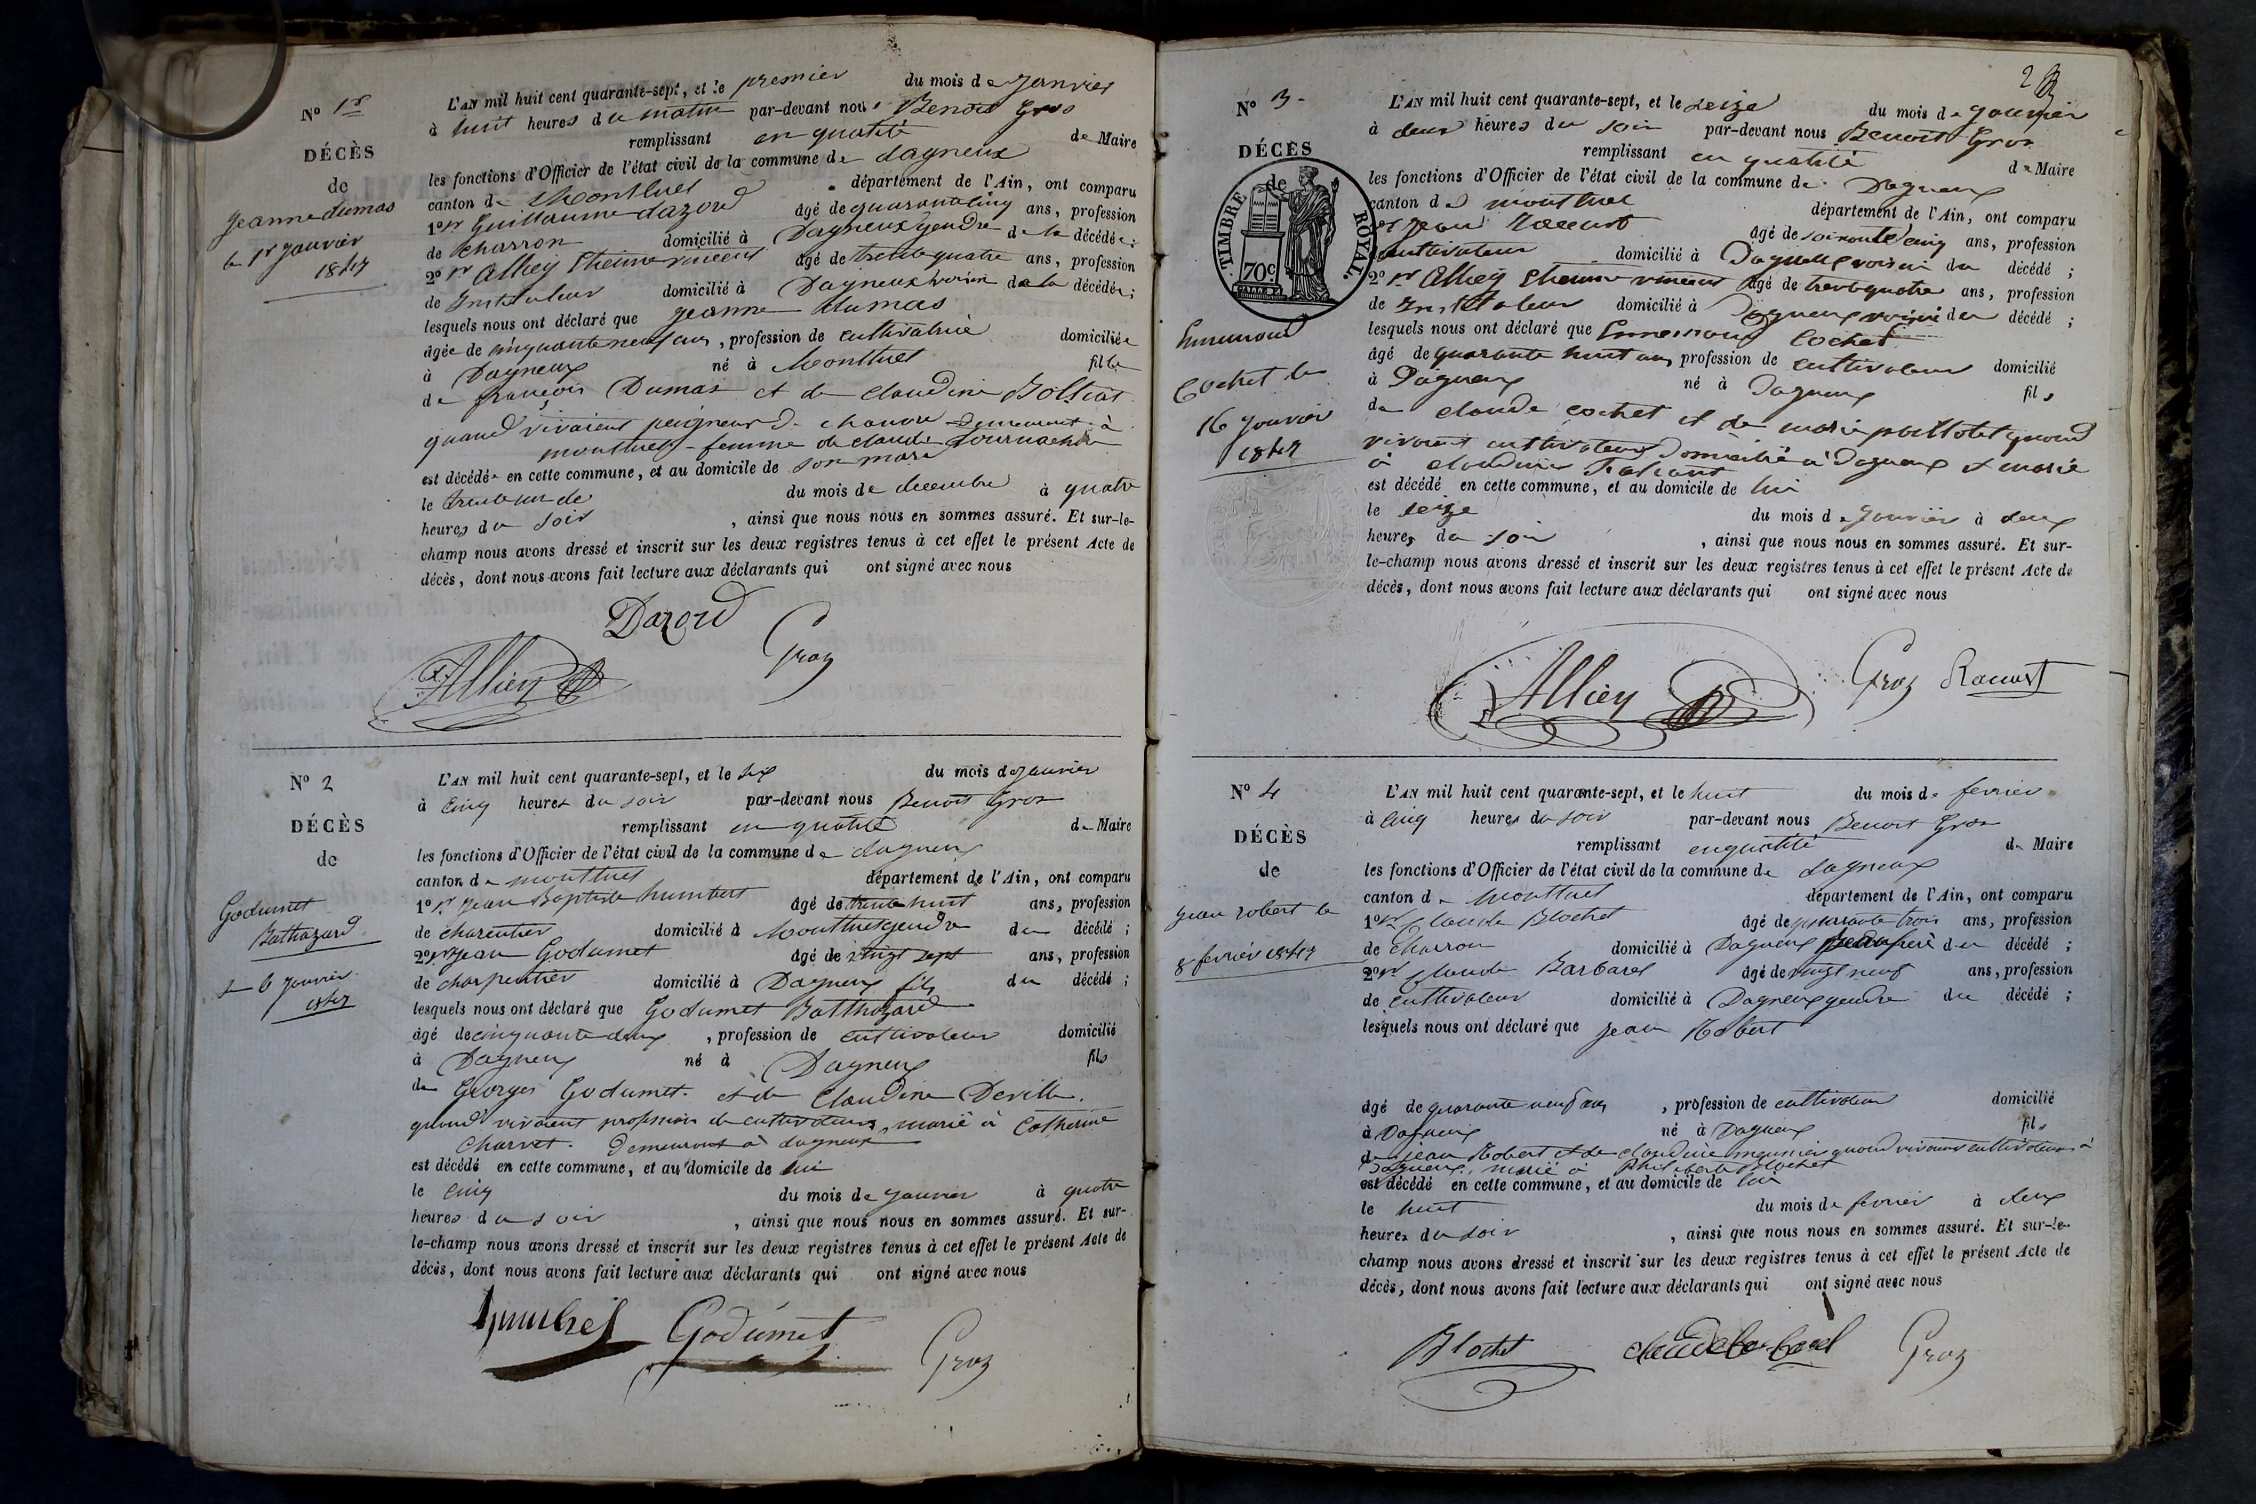 Nº 1er
DÉCÈS
de
Jeanne dumas
le 1r janvier
1847
L'AN mil huit cent quarante-sept, et le premier du mois de janvier
à huit heures du matin par-devant nous Benoit Gros
remplissant en qualité de Maire
les fonctions d'Officier de l'état civil de la commune de dagneux
canton de Montluel département de l'Ain, ont comparu
1º sr Guillaume dazord âgé de quarantecinq ans, profession
de charron domicilié à Dagneux gendre de la décédée;
2º sr Alliey Etienne vincent âgé de trente quatre ans, profession
de Instituteur domicilié à Dagneux voisin de la décédée;
lesquels nous ont déclaré que jeanne dumas
âgée de cinquante neuf ans, profession de cultivatrice domiciliée
à Dagneux né à Montluel fille
de françois Dumas et de claudine
quand vivaient peigneur de chanvre demeurant à
montluel - femme de claude
est décédée en cette commune, et au domicile de son mari
le trente un de du mois de decembre à quatre
heures du soir, ainsi que nous nous en sommes assuré. Et sur-le-
champ nous avons dressé et inscrit sur les deux registres tenus à cet effet le présent Acte de
décès, dont nous avons fait lecture aux déclarants qui ont signé avec nous
Dazord
Alliey Groz
Nº 2
DÉCÈS
de
Godumet
Balthazard
le 6 janvier
1847
L'AN mil huit cent quarante-sept, et le six du mois de janvier
à cinq heures du soir par-devant nous Benoit Gros
remplissant en qualité de Maire
les fonctions d'Officier de l'état civil de la commune de dagneux
canton de montluel département de l'Ain, ont comparu
1º sr jean Baptiste humbert âgé de trente huit ans, profession
de charentier domicilié à Montluel gendre du décédé;
2º sr jean Godumet âgé de vingt sept ans, profession
de charpentier domicilié à Dagneux fils du décédé;
lesquels nous ont déclaré que Godumet Balthazard
âgé de cinquante deux, profession de cultivateur domicilié
à Dagneux né à Dagneux fils
de Georges Godumet et de Claudine Deville.
quand vivaient profession de cultivateurs, marié à Catherine
Charvet. demeurant à dagneux
est décédé en cette commune, et au domicile de lui
le cinq du mois de janvier à quatre
heures du soir, ainsi que nous nous en sommes assuré. Et sur-
le-champ nous avons dressé et inscrit sur les deux registres tenus à cet effet le présent Acte de
décès, dont nous avons fait lecture aux déclarants qui ont signé avec nous
humbert Godumet Groz
2
Nº 3
DÉCÈS
de
TIMBRE ROYAL
70c
Ennemond
Cochet le
16 janvier
1847
L'AN mil huit cent quarante-sept, et le seize du mois de janvier
à deux heures du soir par-devant nous Benoit Gros
remplissant en qualité de Maire
les fonctions d'Officier de l'état civil de la commune de Dagneux
canton de montluel département de l'Ain, ont comparu
1º sr jean Racurt âgé de soixante cinq ans, profession
cultivateur domicilié à Dagneux voisin du décédé;
2º sr Alliey Etienne vincent âgé de trente quatre ans, profession
de Instituteur domicilié à Dagneux voisin du décédé;
lesquels nous ont déclaré que Ennemond Cochet
âgé de quarante huit ans, profession de cultivateur domicilié
à Dagneux né à Dagneux fils
de claude cochet et de marie quand
vivaient cultivateurs domicilié à Dagneux et marié
à claudine
est décédé en cette commune, et au domicile de lui
le seize du mois de janvier à deux
heures du soir, ainsi que nous nous en sommes assuré. Et sur-
le-champ nous avons dressé et inscrit sur les deux registres tenus à cet effet le présent Acte de
décès, dont nous avons fait lecture aux déclarants qui ont signé avec nous
Alliey Groz Racurt
Nº 4
DÉCÈS
de
jean robert le
8 fevrier 1847
L'AN mil huit cent quarante-sept, et le huit du mois de fevrier
à cinq heures du soir par-devant nous Benoit Gros
remplissant en qualité de Maire
les fonctions d'Officier de l'état civil de la commune de dagneux
canton de Montluel département de l'Ain, ont comparu
1º sr Claude Blochet âgé de quarante trois ans, profession
de charron domicilié à Dagneux du décédé;
2º sr Claude Barbarel âgé de vingt neuf ans, profession
de cultivateur domicilié à Dagneux gendre du décédé;
lesquels nous ont déclaré que jean Robert
âgé de quarante neuf ans, profession de cultivateur domicilié
à Dagneux né à Dagneux fils
de jean Robert et de claudine meunier quand vivaient cultivateurs à
Dagneux, marié à Philiberte Blochet
est décédé en cette commune, et au domicile de lui
le huit du mois de fevrier à deux
heures du soir, ainsi que nous nous en sommes assuré. Et sur-le-
champ nous avons dressé et inscrit sur les deux registres tenus à cet effet le présent Acte de
décès, dont nous avons fait lecture aux déclarants qui ont signé avec nous
Blochet claude barbarel Groz